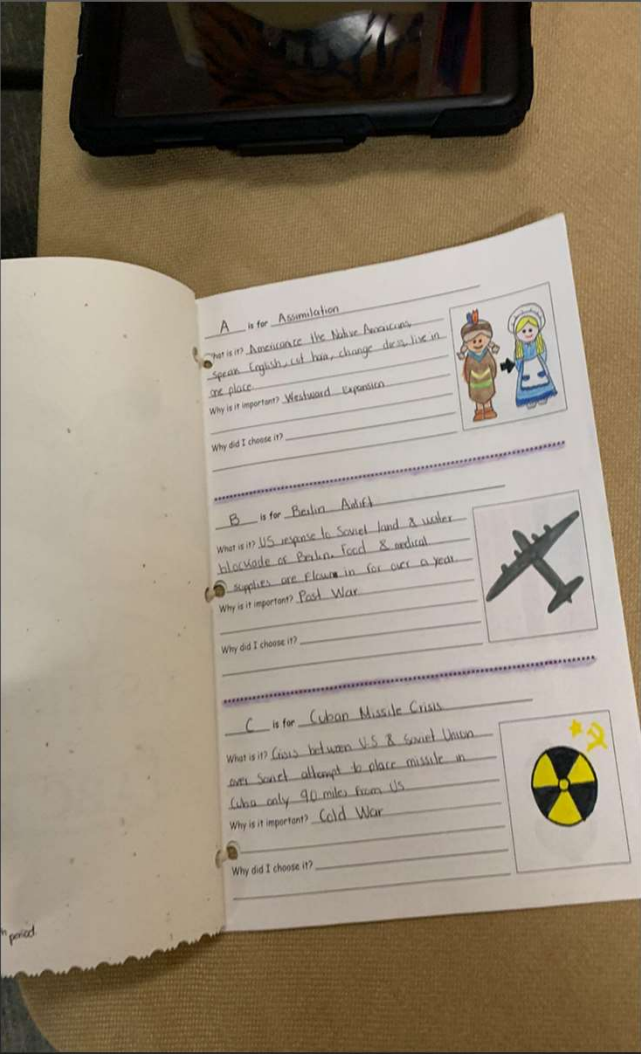 A is for Assimilation
What is it? Americanize the Native Americans,
Speak English, cut hair, change dress, live in
one place.
Why is it important? Westward Expansion
Why did I choose it?
B is for Berlin Airlift
What is it? US response to Soviet land & water
blockade of Berlin. Food & medical
supplies are flown in for over a year
Why is it important? Post War
Why did I choose it?
C is for Cuban Missile Crisis
What is it? Crisis between U.S & Soviet Union
over Soviet attempt to place missile in
Cuba only 90 miles from US
Why is it important? Cold War
Why did I choose it?
period